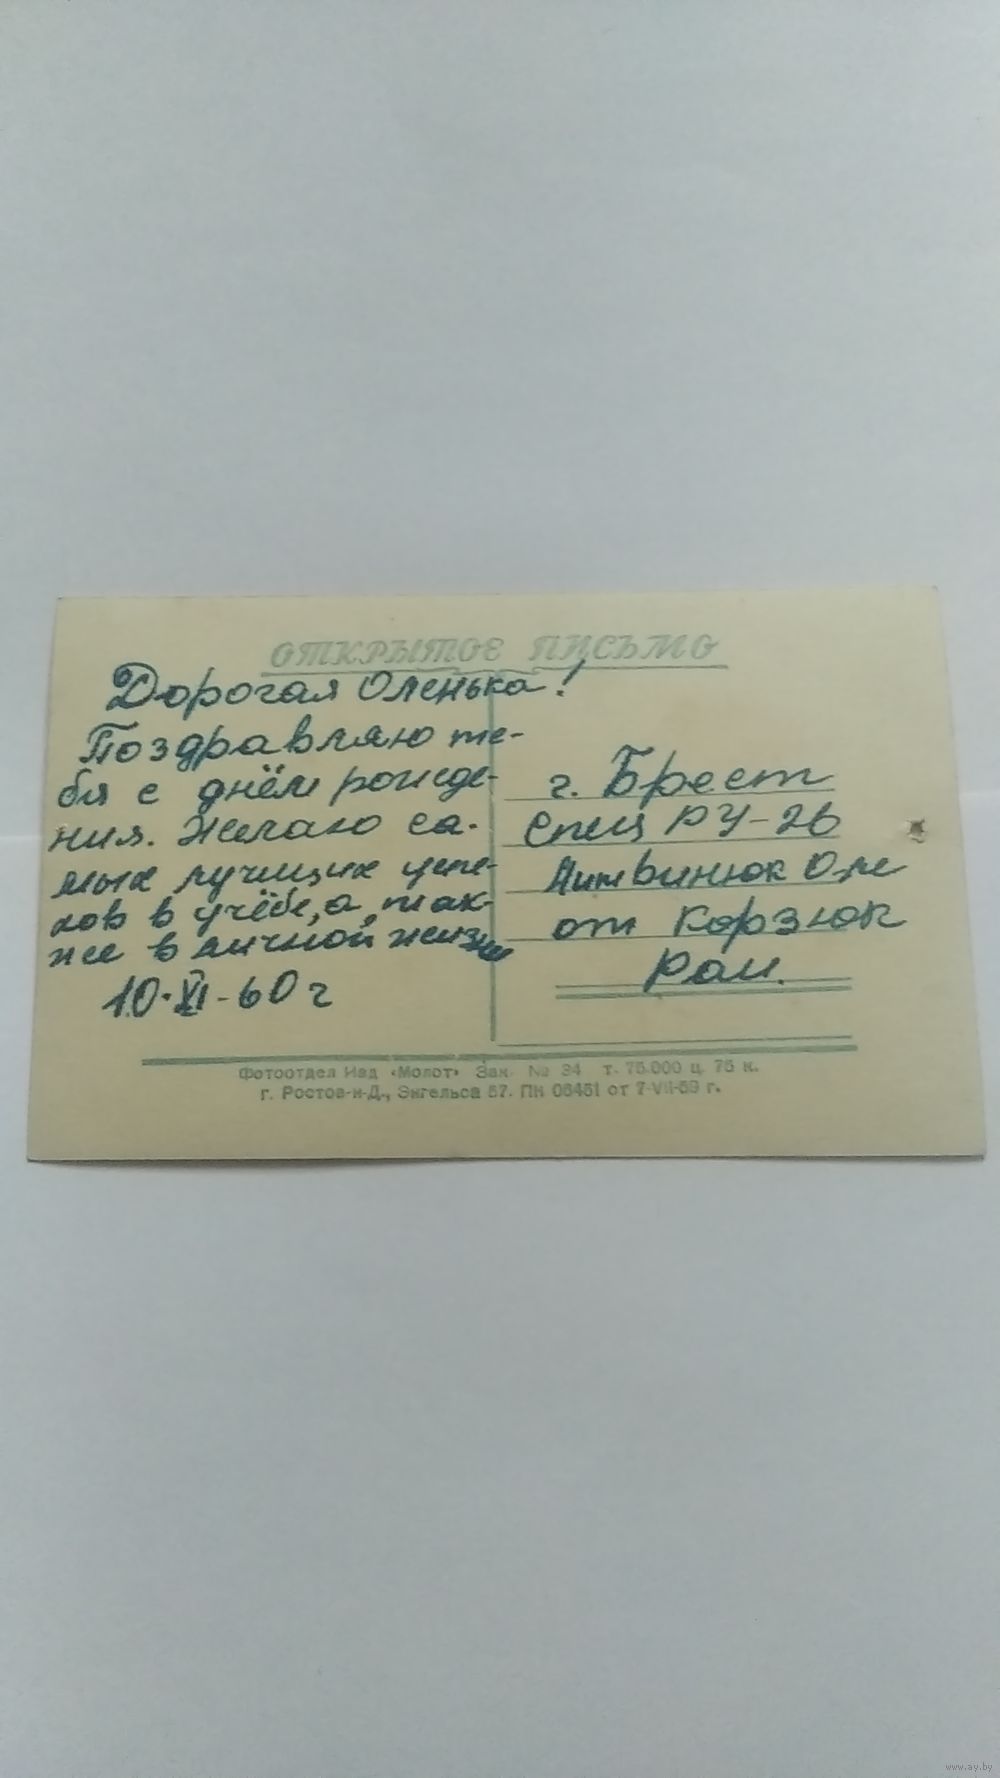 ОТКРЫТОЕ ПИСЬМО
Дорогая Оленька!
Поздравляю те-
бя с днём рожде-
ния. Желаю са-
мых лучших успе-
хов в учёбе, а так-
же в личной жизни
10·XI-60 г
г. Брест
Спец РУ-26
Литвинюк Оле
от Корзюк
Раи.
Фотоотдел Изд «Молот» Зак. № 34 т. 75.000 ц. 75 к.
г. Ростов-н-Д., Энгельса 57. ПК 06451 от 7-VII-59 г.
www.ay.by